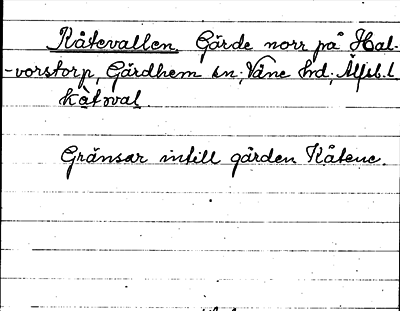 Kåtevallen. Gärde norr på Hal-
-vorstorp, Gärdhem sn, Väne hd, Älfsb. l.
kåtəval.
Gränsar intill gården Kåtene.